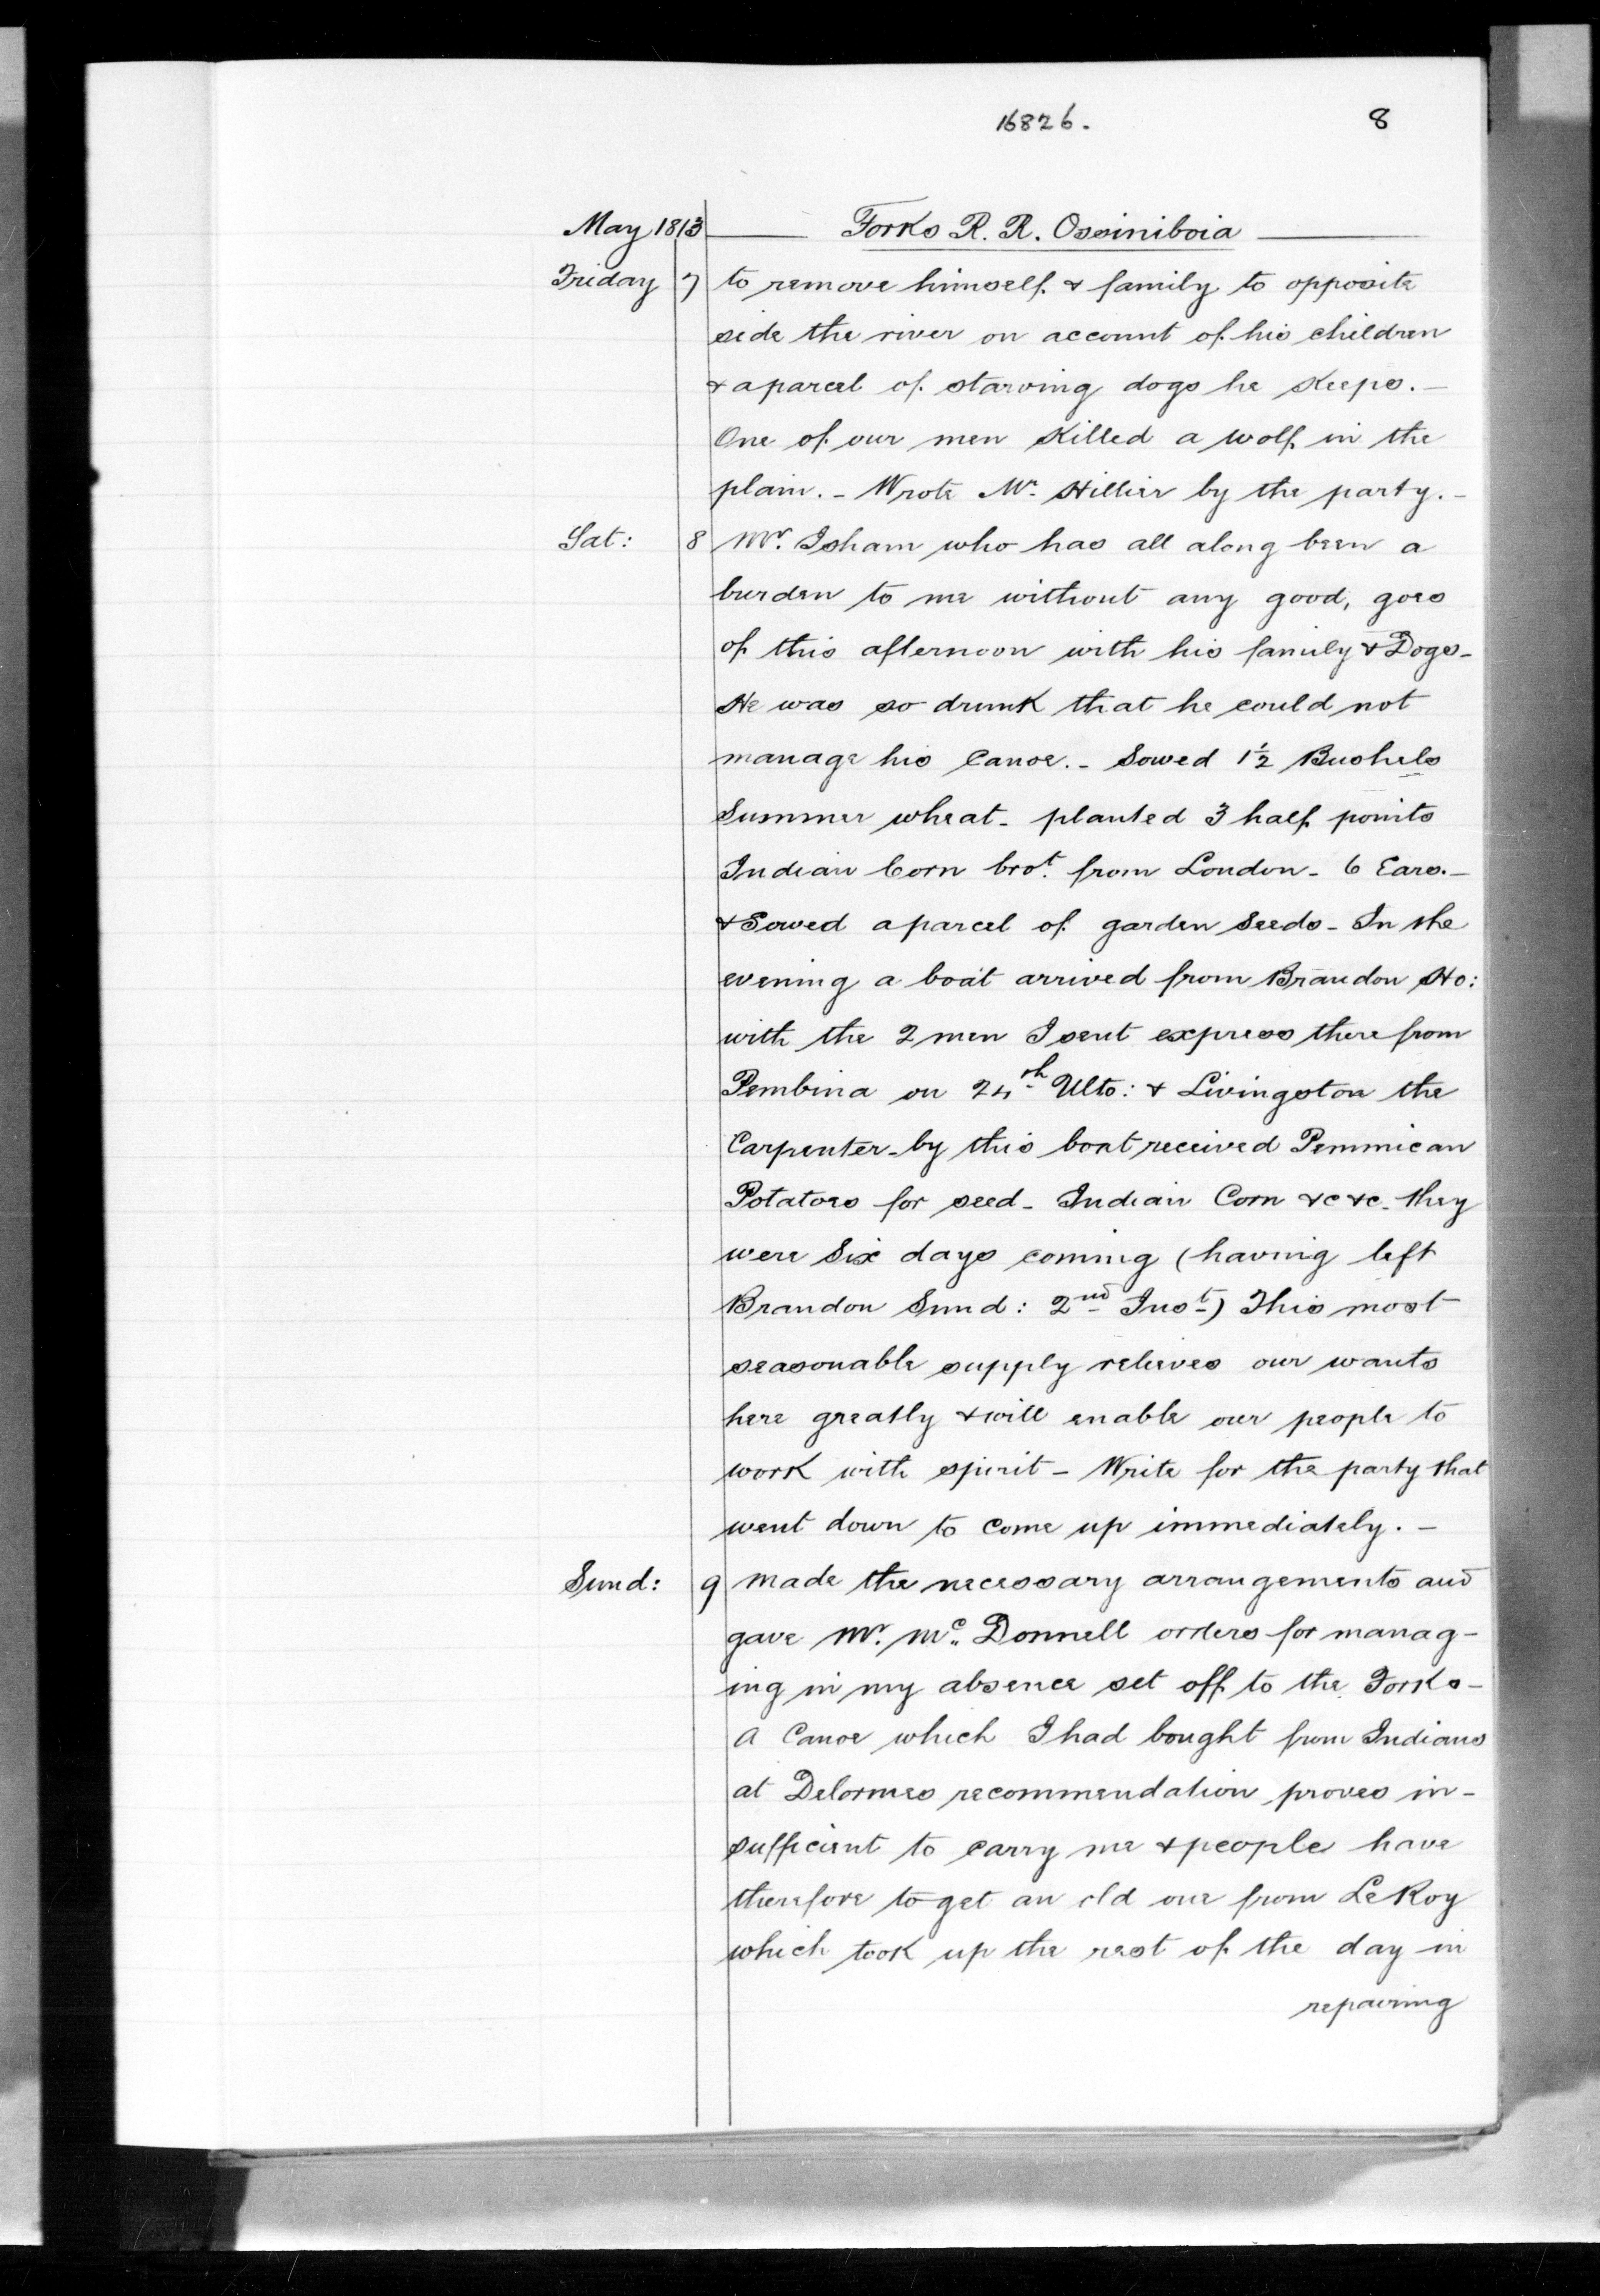 16826. 8
May 1813 Forks R. R. Ossiniboia
Friday 7 to remove himself & family to opposite
side the river on account of his children
& a parcel of starving dogs he keeps. —
One of our men killed a wolf in the
plain. – Wrote Mr. Hillier by the party. –
Sat: 8 Mr. Isham who has all along been a
burden to me without any good, goes
of this afternoon with his family & Dogs –
He was so drunk that he could not
manage his Canoe. – Sowed 1½ Bushels
Summer wheat – planted 3 half points
Indian Corn brot. from London – 6 Ears. –
& Sowed a parcel of garden Seeds – In the
evening a boat arrived from Brandon Ho:
with the 2 men I sent express there from
Pembina on 24th Ulto: & Livingston the
Carpenter – by this boat received Pemmican
Potatoes for seed – Indian Corn &c &c – they
were Six days coming (having left
Brandon Sund: 2nd Inst) This most
seasonable supply relieves our wants
here greatly & will enable our people to
work with spirit – Write for the party that
went down to come up immediately. –
Sund: 9 Made the necessary arrangements and
gave Mr. Mc. Donnell orders for manag-
ing in my absence set off to the Forks –
A Canoe which I had bought from Indians
at Delormes recommendation proves in-
sufficient to carry me & people have
therefore to get an old one from Le Roy
which took up the rest of the day in
repairing